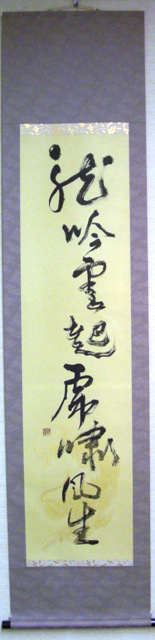 龍吟雲起虎嘯風生